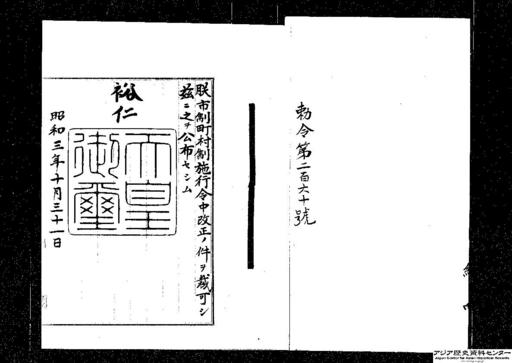 勅令第二百六十號
朕市制町村制施行令中改正ノ件ヲ裁可シ
茲ニ之ヲ公布セシム
裕仁
天皇
御璽
昭和三年十月三十一日
アジア歴史資料センター
Japan Center for Asian Historical Records